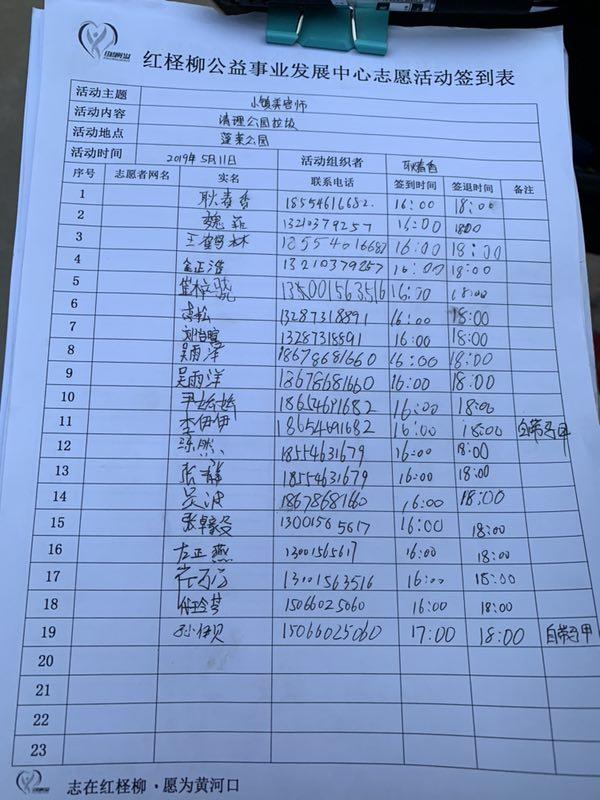 红柽柳公益事业发展中心志愿活动签到表
活动主题 小镇美容师
活动内容 清理公园垃圾
活动地点 蓬莱公园
活动时间 2019年5月11日 活动组织者 耿春香
序号 志愿者网名 实名 联系电话 签到时间 签退时间 备注
1 耿春香 18554616682. 16:00 18:00
2 魏菲 13210379257 16:00 1800
3 王鹤林 16:00 18:00
4 13210379257 16:00 18:00
5 16:00 18:00
6 袁松 13287318891 16:00 18:00
7 16:00 18:00
8 吴雨洋 18678681660 16:00 18:00
9 吴雨洋 18678681660 16:00 18:00
10 尹姗姗 18654691682 16:00 18:00
11 李伊伊 18654691682 16:00 18:00 自带马甲
12 18554631679 16:00 18:00
13 张静 18554631679 16:00 18:00
14 吴波 18678681660 16:00 18:00
15 1300156 5617 16:00 18:00
16 左正燕 13001565617 16:00 18:00
17 13001563516 16:00 18:00
18 15066025060 16:00 18:00
19 孙伊贝 15066025060 17:00 18:00 自带马甲
20
21
22
23
志在红柽柳·愿为黄河口